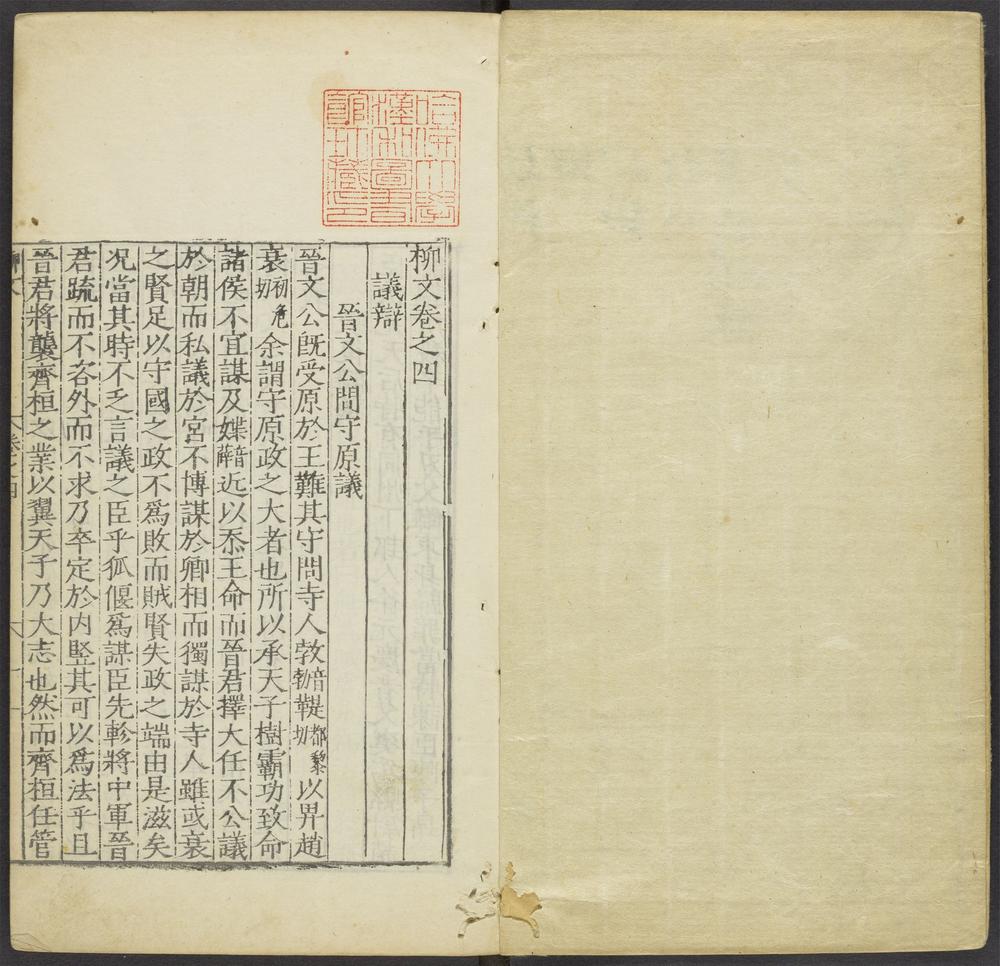 哈佛大學
漢和圖書
館珍藏印
柳文卷之四
議辯
晉文公問守原議
晉文公旣受原於王難其守問寺人敦音勃鞮都黎切以畀趙
衰初危切余謂守原政之大者也所以承天子樹霸功致命
諸侯不宜謀及媟音薛近以忝王命而晉君擇大任不公議
於朝而私議於宮不博謀於卿相而獨謀於寺人雖或衰
之賢足以守國之政不爲敗而賊賢失政之端由是滋矣
况當其時不乏言議之臣乎狐偃爲謀臣先軫將中軍晉
君疏而不咨外而不求乃卒定於内竪其可以爲法乎且
晉君將襲齊桓之業以翼天子乃大志也然而齊桓任管